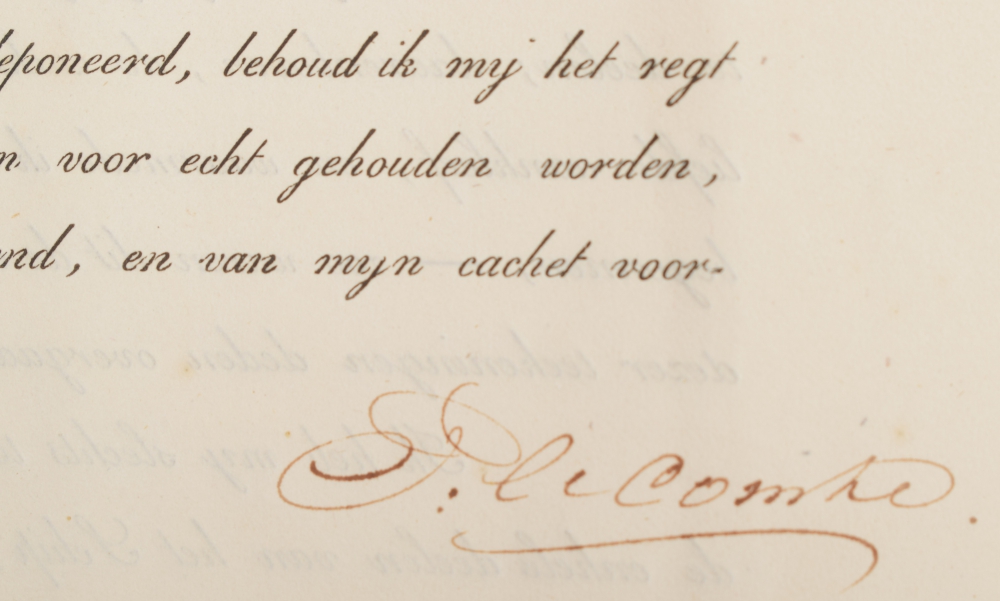 deponeerd, behoud ik mij het regt
n voor echt gehouden worden,
and, en van mijn cachet voor-
P. le Comte.